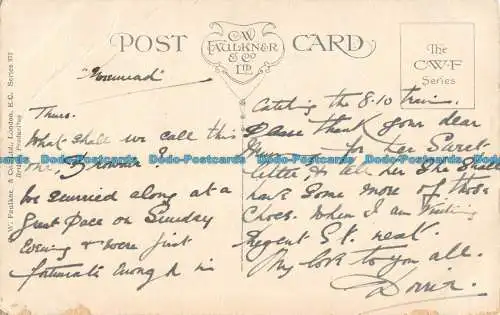 POST CARD
C.W.
FAULKNER
& Co
LTD.
The
C.W.F
Series
C. W. Faulkner & Co., Ltd., London, E.C. Series 972
British Production
Thurs.
What shall we call this
one.
We scurried along at a
great pace on Sunday
Evening & were just
fortunate enough in
Catching the 8.10 train.
Please thank your dear
for her Sweet
letter & tell her She Shall
have Some more of those
Chocs. When I am Visiting
Regent St. next.
My love to you all.
Dorrie.
Dodo-Postcards Dodo-Postcards Dodo-Postcards Dodo-Postcards Dodo-Postcards